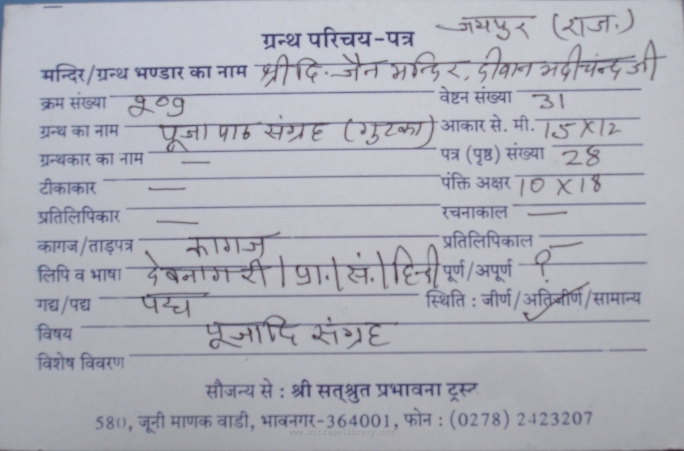 ग्रन्थ परिचय-पत्र जयपुर (राज.)
मन्दिर/ग्रन्थ भण्डार का नाम श्री दि. जैन मन्दिर, दीवान भदीचन्द जी
क्रम संख्या २०१ वेष्टन संख्या 31
ग्रन्थ का नाम पूजा पाठ संग्रह (गुटका) आकार से. मी. 15 X 12
ग्रन्थकार का नाम — पत्र (पृष्ठ) संख्या 28
टीकाकार — पंक्ति अक्षर 10 X 18
प्रतिलिपिकार — रचनाकाल —
कागज/ताड़पत्र कागज प्रतिलिपिकाल —
लिपि व भाषा देवनागरी/प्रा./सं./हिन्दी पूर्ण/अपूर्ण ?
गद्य/पद्य पद्य स्थिति : जीर्ण/अतिजीर्ण/सामान्य
विषय पूजादि संग्रह
विशेष विवरण
सौजन्य से : श्री सत्श्रुत प्रभावना ट्रस्ट
580, जूनी माणक वाडी, भावनगर-364001, फोन : (0278) 2423207